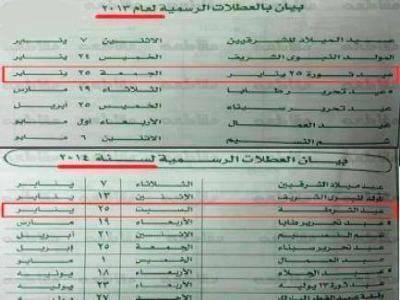 بيان بالعطلات الرسمية لعام ٢٠١٣
عيد الميلاد للشرقيين الاثنين ٧ يناير
المولد النبوى الشريف الخميس ٢٤ يناير
عيد ثورة ٢٥ يناير الجمعة ٢٥ يناير
عيد تحرير طابا الثلاثاء ١٩ مارس
عيد تحرير سيناء الخميس ٢٥ أبريل
عيد العمال الأربعاء أول مايو
شم النسيم الاثنين ٦ مايو
بيان العطلات الرسمية لسنة ٢٠١٤
عيد ميلاد الشرقيين الثلاثاء ٧ يناير
المولد النبوى الشريف الاثنين ١٣ يناير
عيد الشرطة السبت ٢٥ يناير
عيد تحرير طابا الأربعاء ١٩ مارس
شم النسيم الاثنين ٢١ أبريل
عيد تحرير سيناء الجمعة ٢٥ أبريل
عيد العمال الخميس ١ مايو
عيد الجلاء الأربعاء ١٨ يونيه
عيد ثورة ٢٣ يوليه الأربعاء ٢٣ يوليه